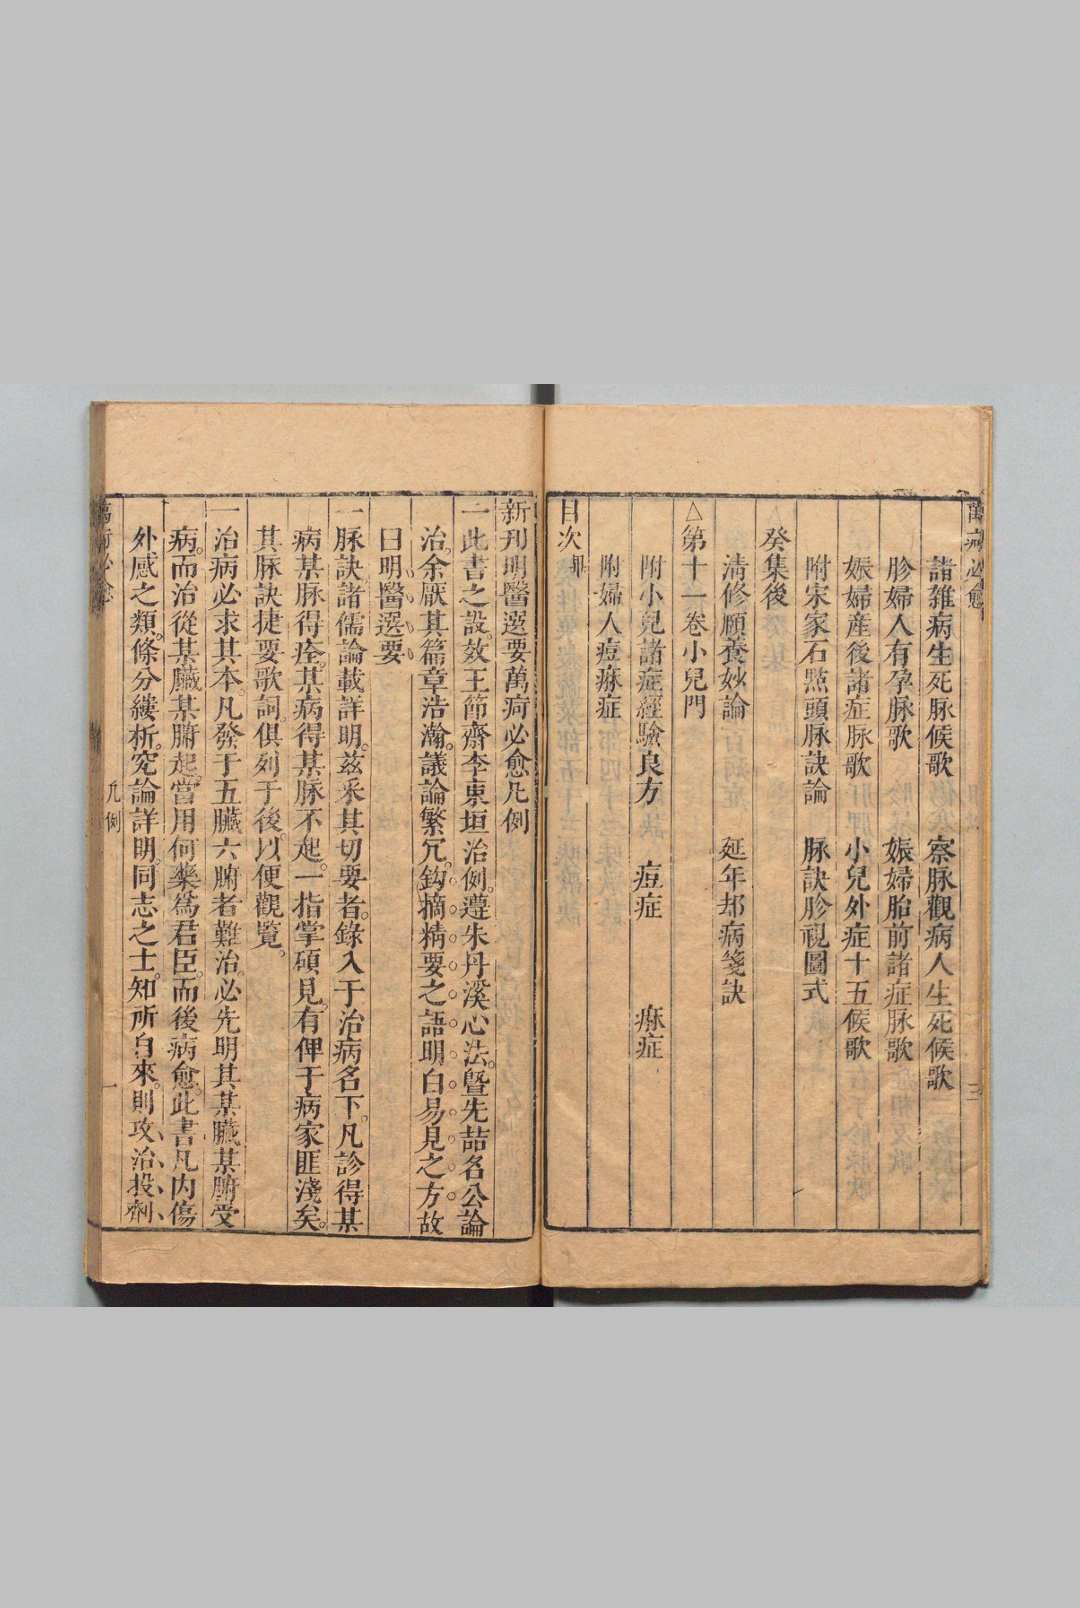 萬病必愈
三
諸雜病生死脉候歌 察脉觀病人生死候歌
胗婦人有孕脉歌 娠婦胎前諸症脉歌
娠婦産後諸症脉歌 小兒外症十五候歌
附宋家石㸃頭脉訣論 脉訣胗視圖式
癸集後
清修頤養妙論 延年却病箋訣
△第十一卷小兒門
附小兒諸症經驗良方 痘症 痳症
附婦人痘痳症
目次
新刊明醫選要萬病必愈凡例
一此書之設。效王節齋李東垣治例。遵朱丹溪心法。曁先喆名公論
治。余厭其篇章浩瀚。議論繁冗。鈎摘精要之語明白易見之方故
曰明醫選要
一脉訣。諸儒論載詳明。兹采其切要者。錄入于治病名下。凡診得某
病某脉得痊。某病得某脉不起。一指掌碩見。有俾于病家匪淺矣。
其脉訣捷要歌詞。俱列于後。以便觀覧。
一治病必求其本。凡發于五臟六腑者難治。必先明其某臟某腑受
病。而治從某臟某腑起。當用何藥爲君臣。而後病愈。此書凡内傷
外感之類。條分縷析。究論詳明。同志之士。知所自來。則攻治投劑
萬病必愈
凡例
一